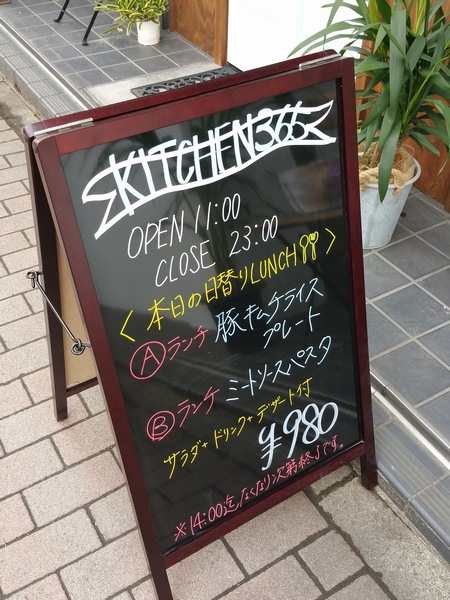 KITCHEN365
OPEN 11:00
CLOSE 23:00
<本日の日替りLUNCH>
Ⓐランチ 豚キムチライス
プレート
Ⓑランチ ミートソースパスタ
サラダ+ドリンク+デザート付
¥980
※14:00迄なくなり次第終了です。